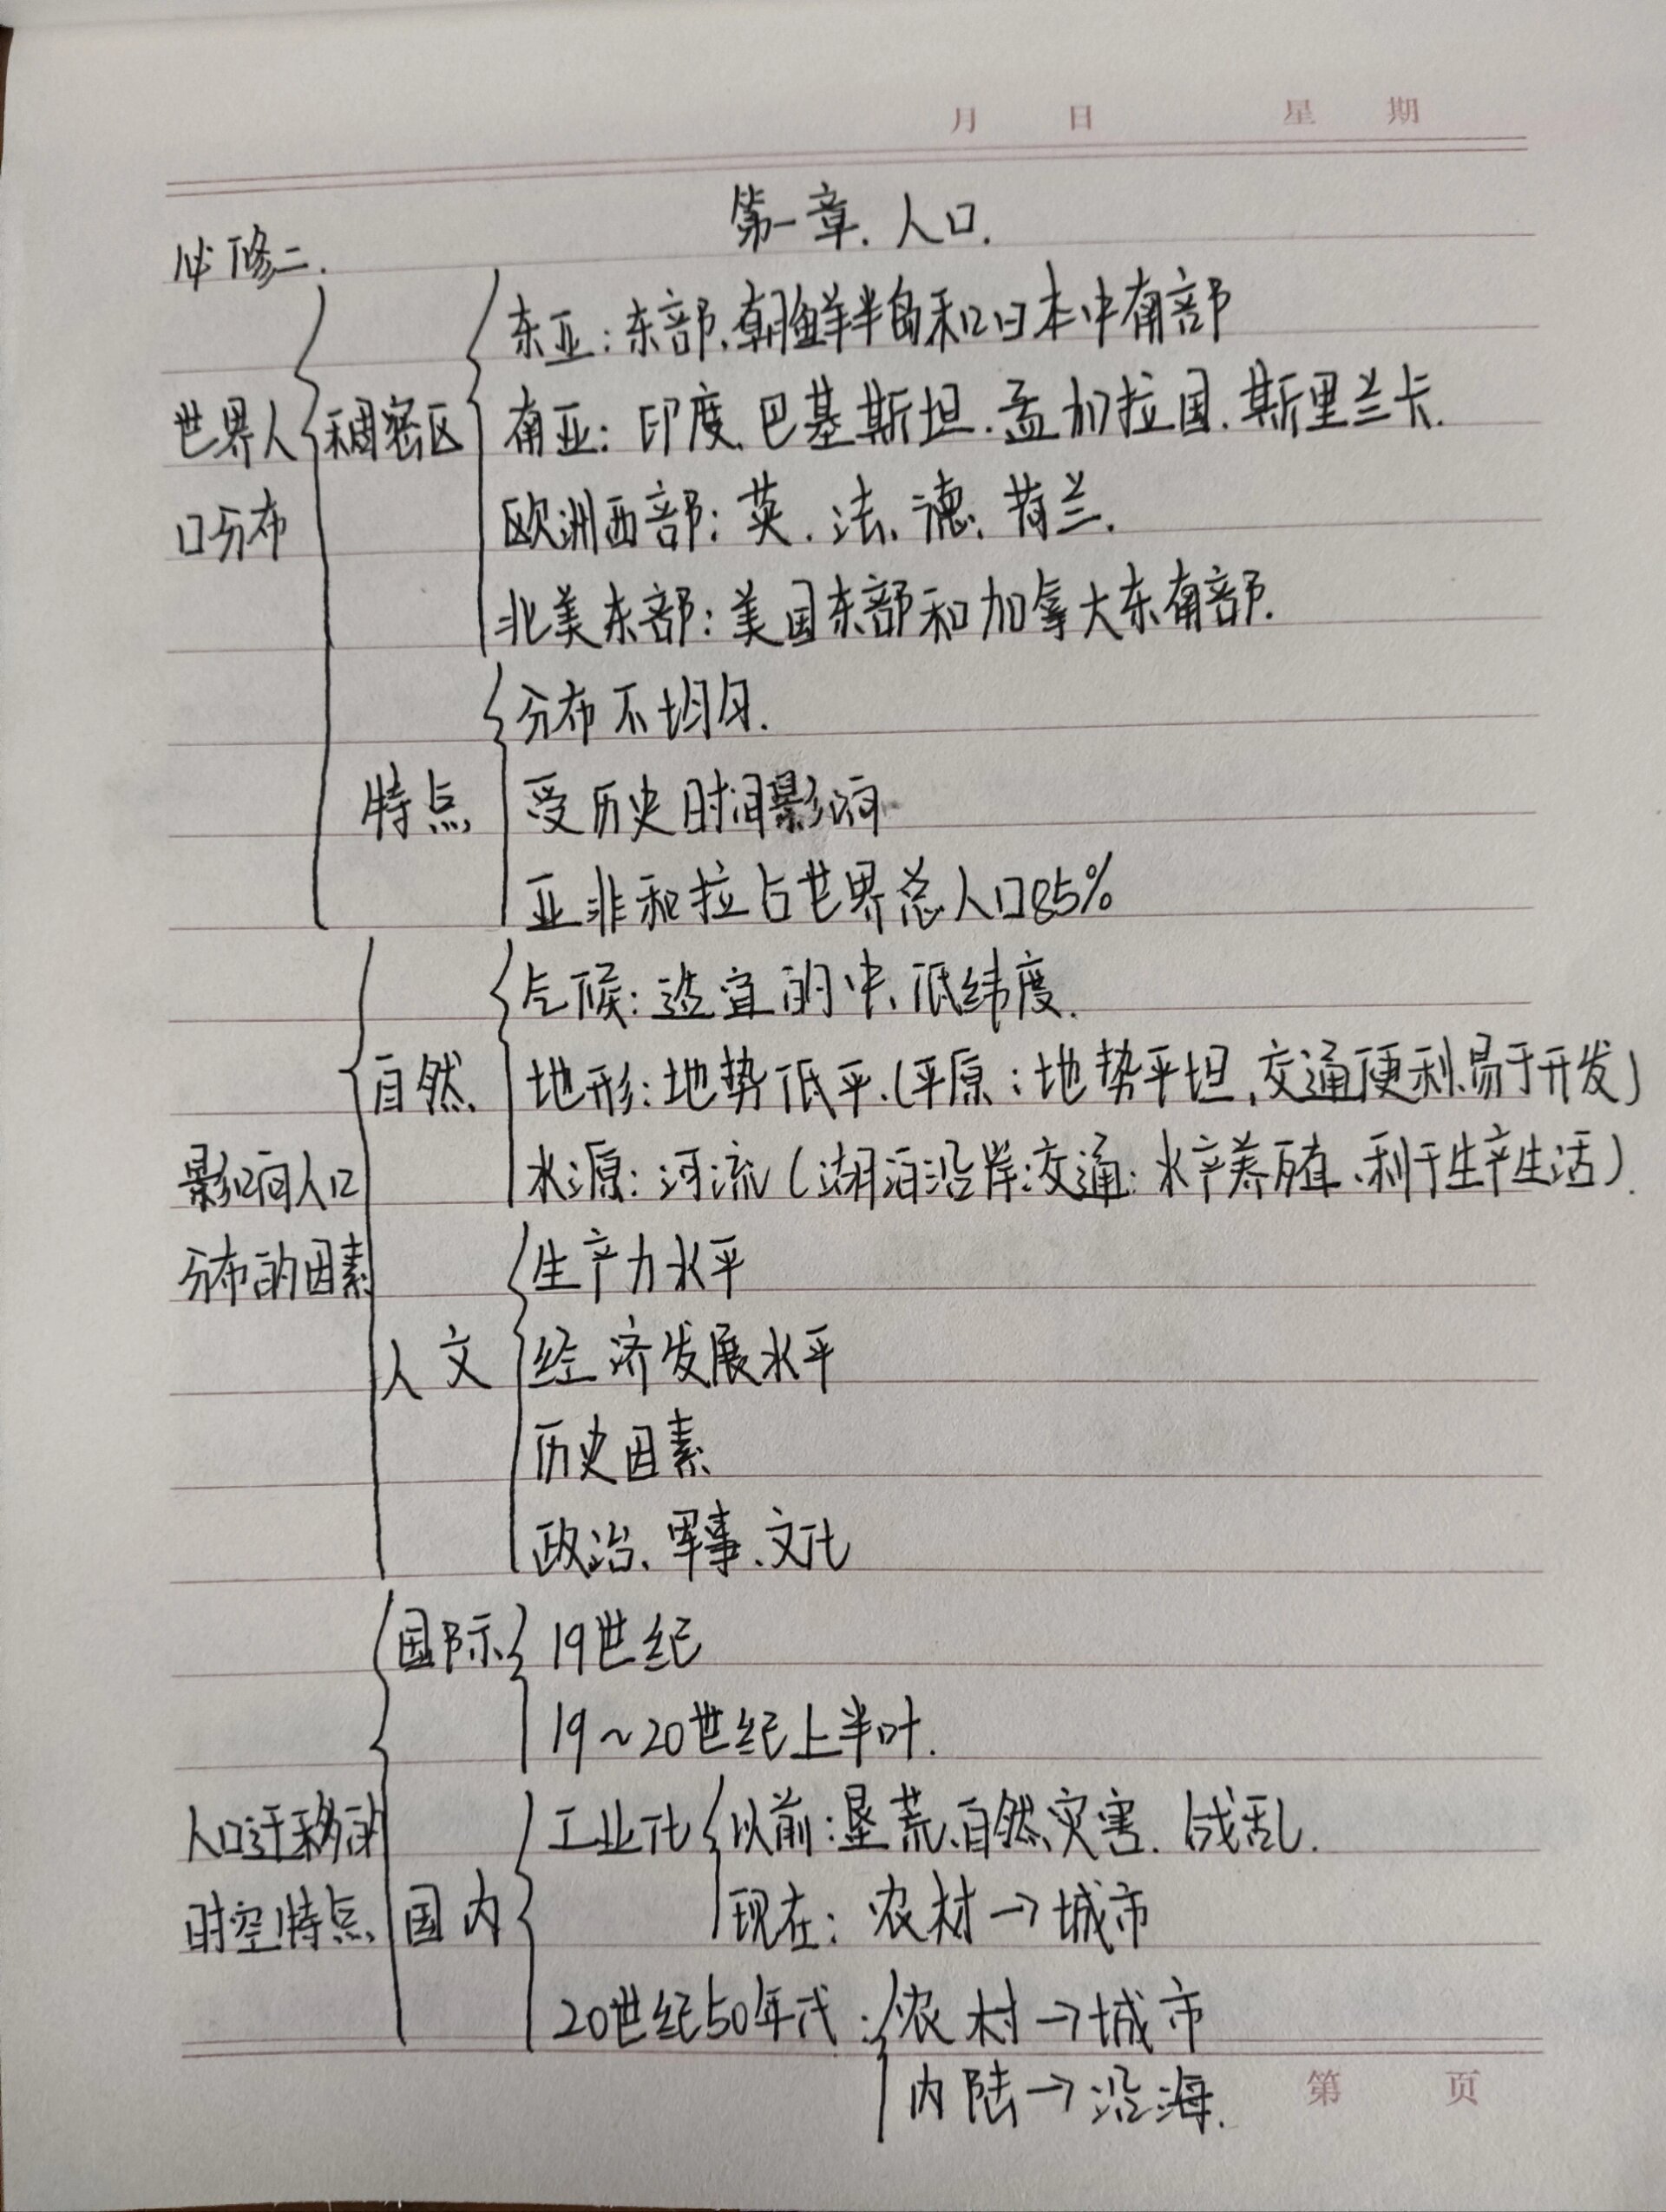 月 日 星 期
第一章. 人口.
必修二.
东亚:东部、朝鲜半岛和日本中南部
世界人 稠密区 南亚:印度、巴基斯坦、孟加拉国、斯里兰卡.
口分布 欧洲西部:英、法、德、荷兰.
北美东部:美国东部和加拿大东南部.
分布不均匀.
特点 受历史时间影响
亚非和拉占世界总人口85%
气候:适宜的中、低纬度.
自然 地形:地势低平.(平原:地势平坦,交通便利、易于开发)
影响人口 水源:河流(湖泊沿岸:交通;水产养殖、利于生产生活).
分布的因素 生产力水平
人文 经济发展水平
历史因素
政治、军事、文化
国际 19世纪
19~20世纪上半叶.
人口迁移的 工业化 以前:垦荒、自然灾害、战乱.
时空特点 国内 现在:农村→城市
20世纪50年代:农村→城市
内陆→沿海.
第 页